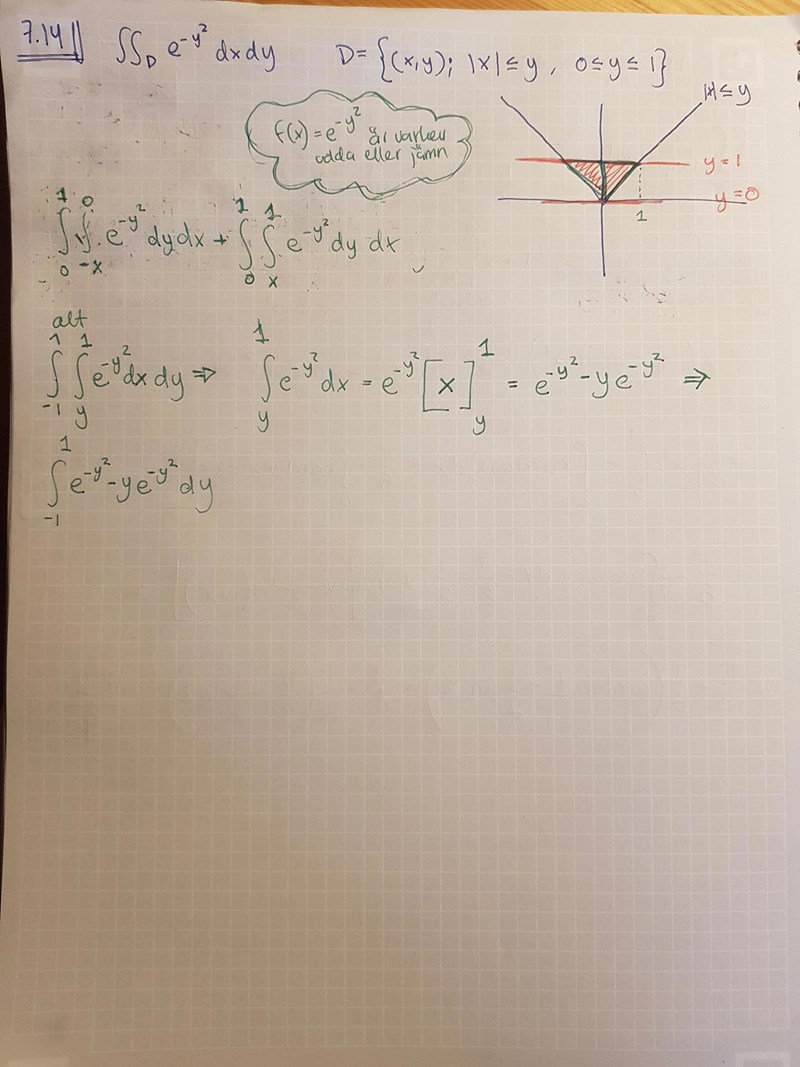 7.14 ∬_D e^{-y²} dx dy D = {(x,y); |x| ≤ y, 0 ≤ y ≤ 1}
|x| ≤ y
f(x) = e^{-y²} är varken
udda eller jämn
y = 1
y = 0
1
∫_0^1 ∫_{-x}^0 e^{-y²} dy dx + ∫_0^1 ∫_x^1 e^{-y²} dy dx
alt
∫_{-1}^1 ∫_y^1 e^{-y²} dx dy ⇒ ∫_y^1 e^{-y²} dx = e^{-y²} [x]_y^1 = e^{-y²} - ye^{-y²} ⇒
∫_{-1}^1 e^{-y²} - ye^{-y²} dy